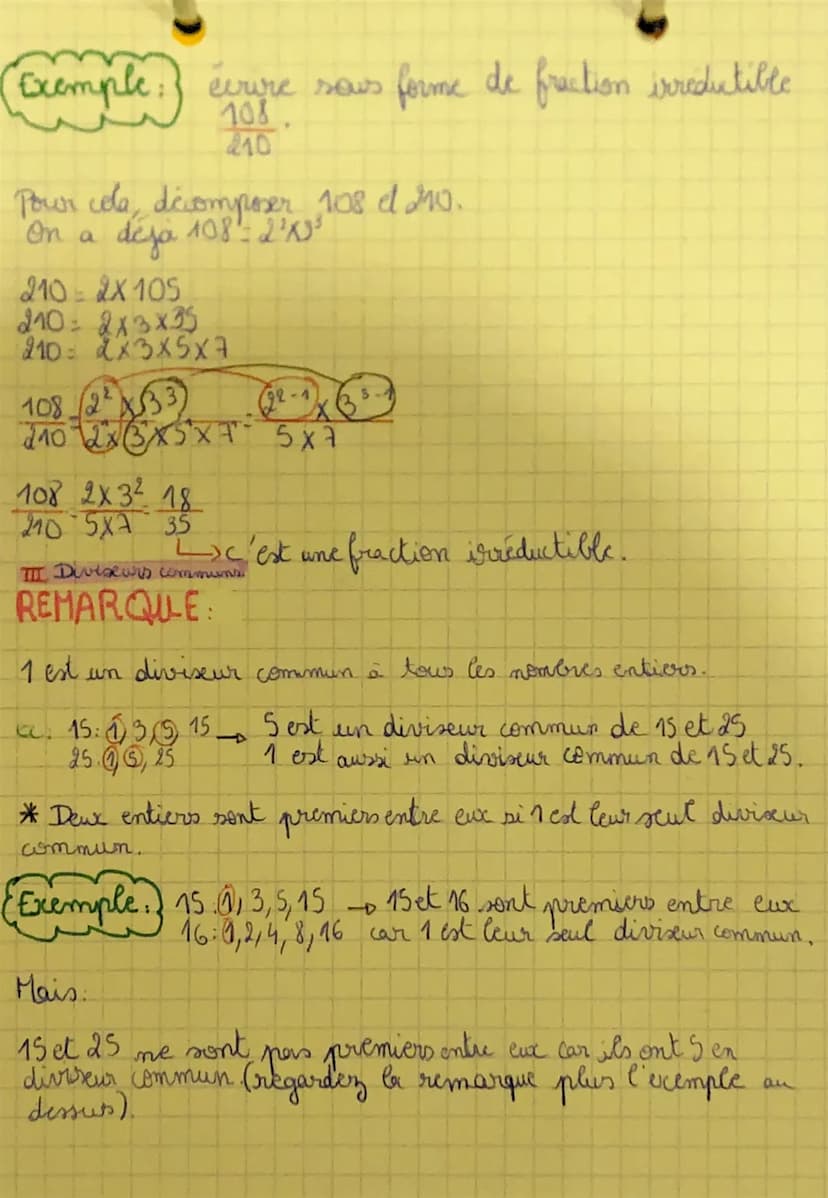 Exemple: écrire sous forme de fraction irréductible
108/210.
Pour cela, décomposer 108 et 210.
On a déja 108 = 2²×3³
210 = 2×105
210 = 2×3×35
210 = 2×3×5×7
108/210 = 2²×3³/2×3×5×7 = 2²⁻¹×3³⁻¹/5×7
108/210 = 2×3²/5×7 = 18/35
↳ c'est une fraction irréductible.
III Diviseurs communs
REMARQUE:
1 est un diviseur commun à tous les nombres entiers.
15: 1, 3, 5, 15 → 5 est un diviseur commun de 15 et 25
25: 1, 5, 25 1 est aussi un diviseur commun de 15 et 25.
* Deux entiers sont premiers entre eux si 1 est leur seul diviseur
commun.
Exemple: 15: 1, 3, 5, 15 → 15 et 16 sont premiers entre eux
16: 1, 2, 4, 8, 16 car 1 est leur seul diviseur commun.
Mais:
15 et 25 ne sont pas premiers entre eux car ils ont 5 en
diviseur commun (regardez la remarque plus l'exemple au
dessus).